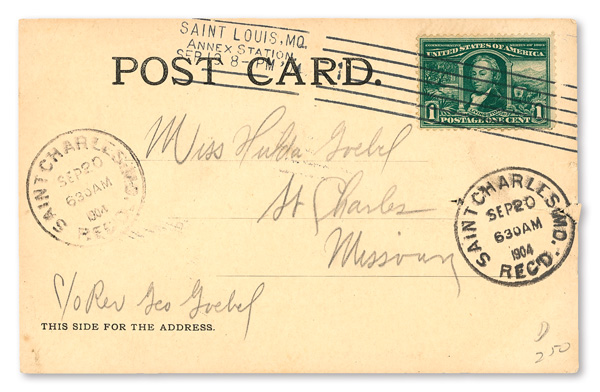 SAINT LOUIS, MO.
ANNEX STATION
SEP 19 8-PM
POST CARD.
UNITED STATES OF AMERICA
1 1
POSTAGE ONE CENT
Miss Hulda Goebel
St Charles
Missouri
SAINT CHARLES, MO.
SEP 20
630AM
1904
REC'D.
SAINT CHARLES, MO.
SEP 20
630AM
1904
REC'D.
c/o Rev Geo Goebel
THIS SIDE FOR THE ADDRESS.
D
250